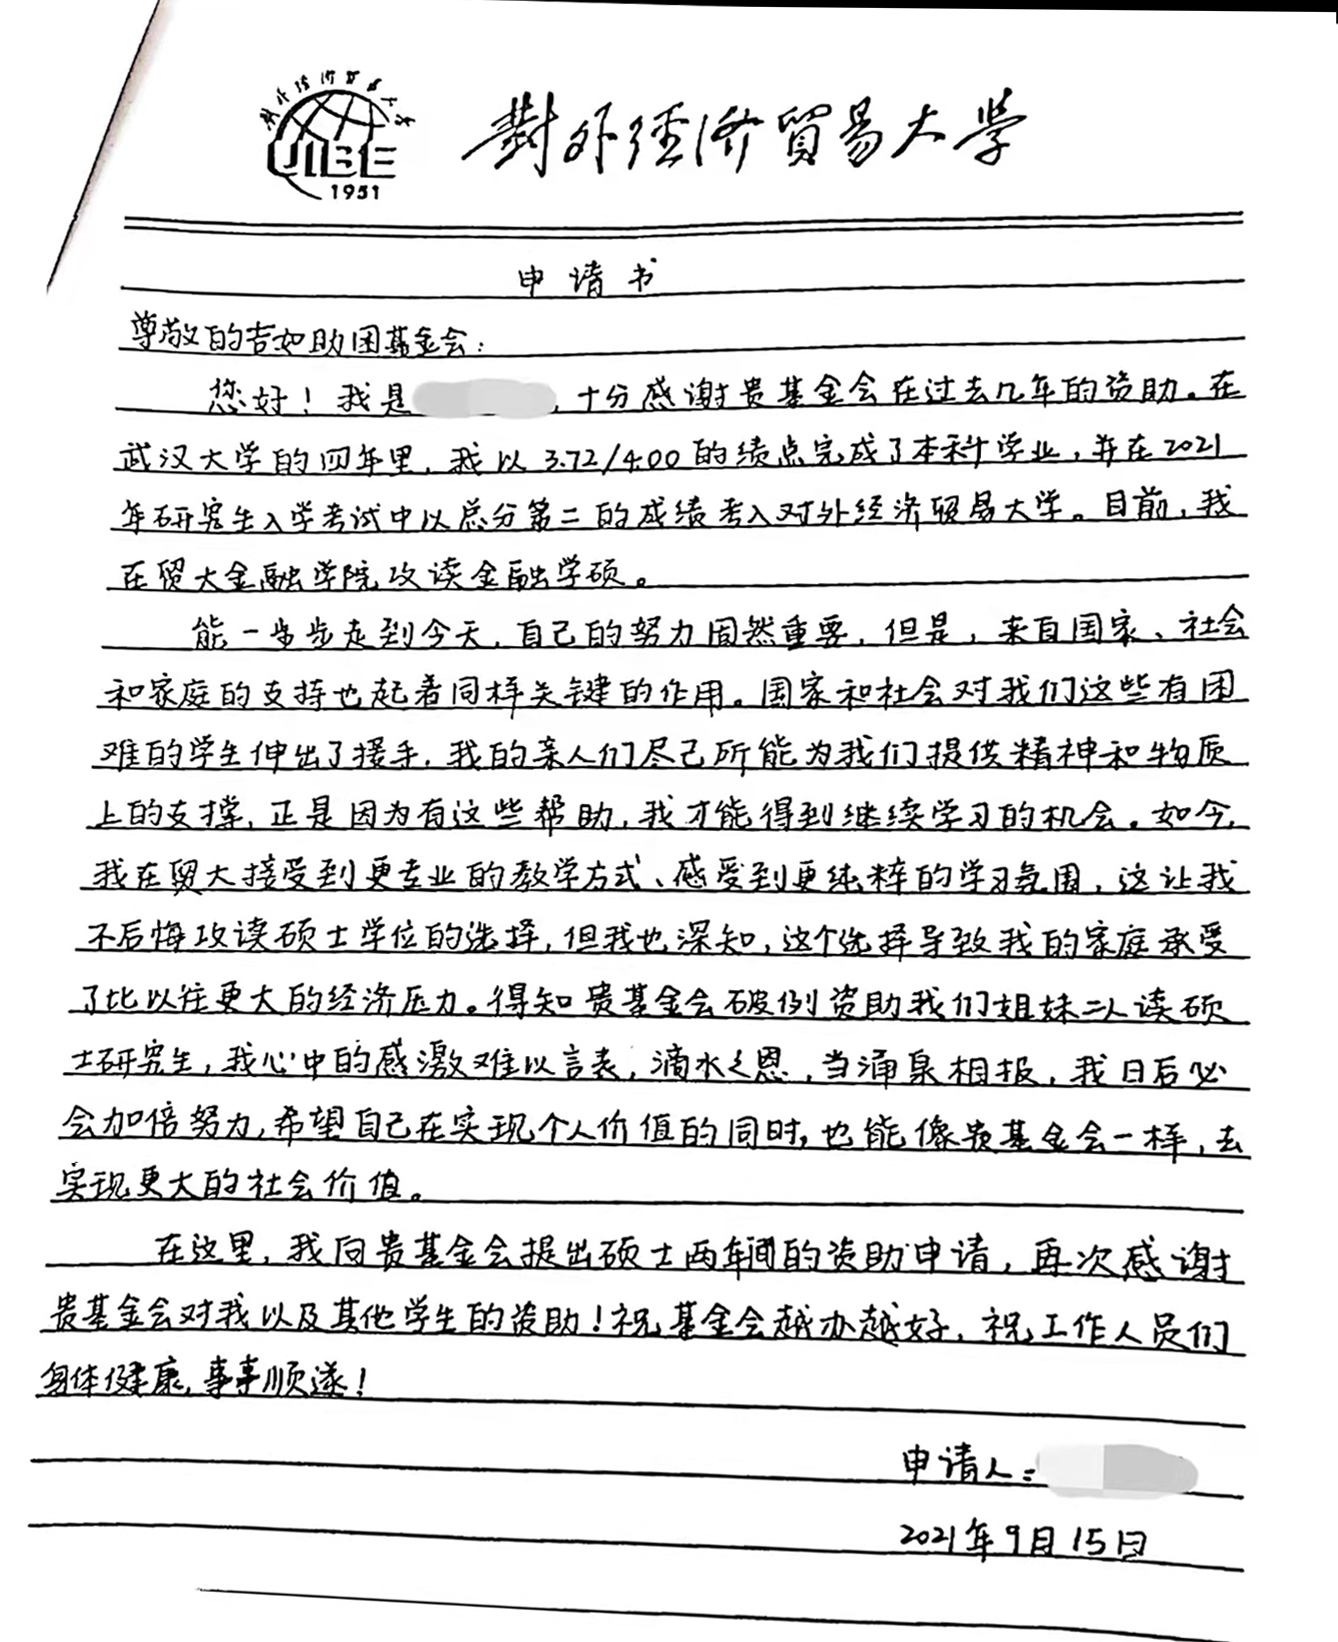 对外经济贸易大学
UIBE
1951
對外经济貿易大学
申请书
尊敬的吉如助困基金会:
您好！我是，十分感谢贵基金会在过去几年的资助。在
武汉大学的四年里，我以3.72/4.00的绩点完成了本科学业，并在2021
年研究生入学考试中以总分第二的成绩考入对外经济贸易大学。目前，我
在贸大金融学院攻读金融学硕。
能一步步走到今天，自己的努力固然重要，但是，来自国家、社会
和家庭的支持也起着同样关键的作用。国家和社会对我们这些有困
难的学生伸出了援手，我的亲人们尽己所能为我们提供精神和物质
上的支撑，正是因为有这些帮助，我才能得到继续学习的机会。如今，
我在贸大接受到更专业的教学方式、感受到更纯粹的学习氛围，这让我
不后悔攻读硕士学位的选择，但我也深知，这个选择导致我的家庭承受
了比以往更大的经济压力。得知贵基金会破例资助我们姐妹二人读硕
士研究生，我心中的感激难以言表，滴水之恩，当涌泉相报，我日后必
会加倍努力，希望自己在实现个人价值的同时，也能像贵基金会一样，去
实现更大的社会价值。
在这里，我向贵基金会提出硕士两年间的资助申请，再次感谢
贵基金会对我以及其他学生的资助！祝基金会越办越好，祝工作人员们
身体健康，事事顺遂！
申请人：
2021年9月15日